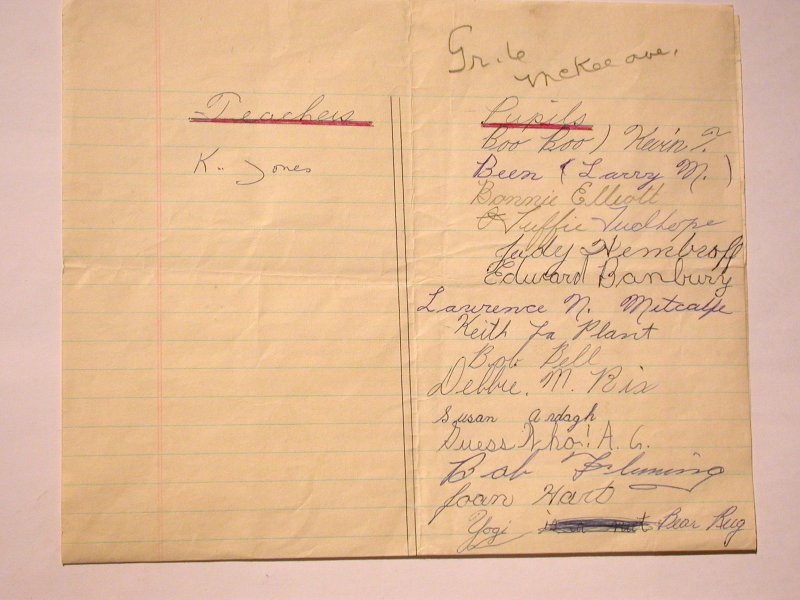 Gr. 6
McKee ave.
Teachers
K. Jones
Pupils
Boo Boo) Kevin T.
Been (Larry M.)
Bonnie Elliott
Tuffie Tudhope
Judy Hembroff
Edward Banbury
Lawrence N. Metcalfe
Keith La Plant
Bob Bell
Debbie. M. Rix
Susan Ardagh
Guess Who! A. G.
Bob Fleming
Joan Hart
Yogi Bear Rug